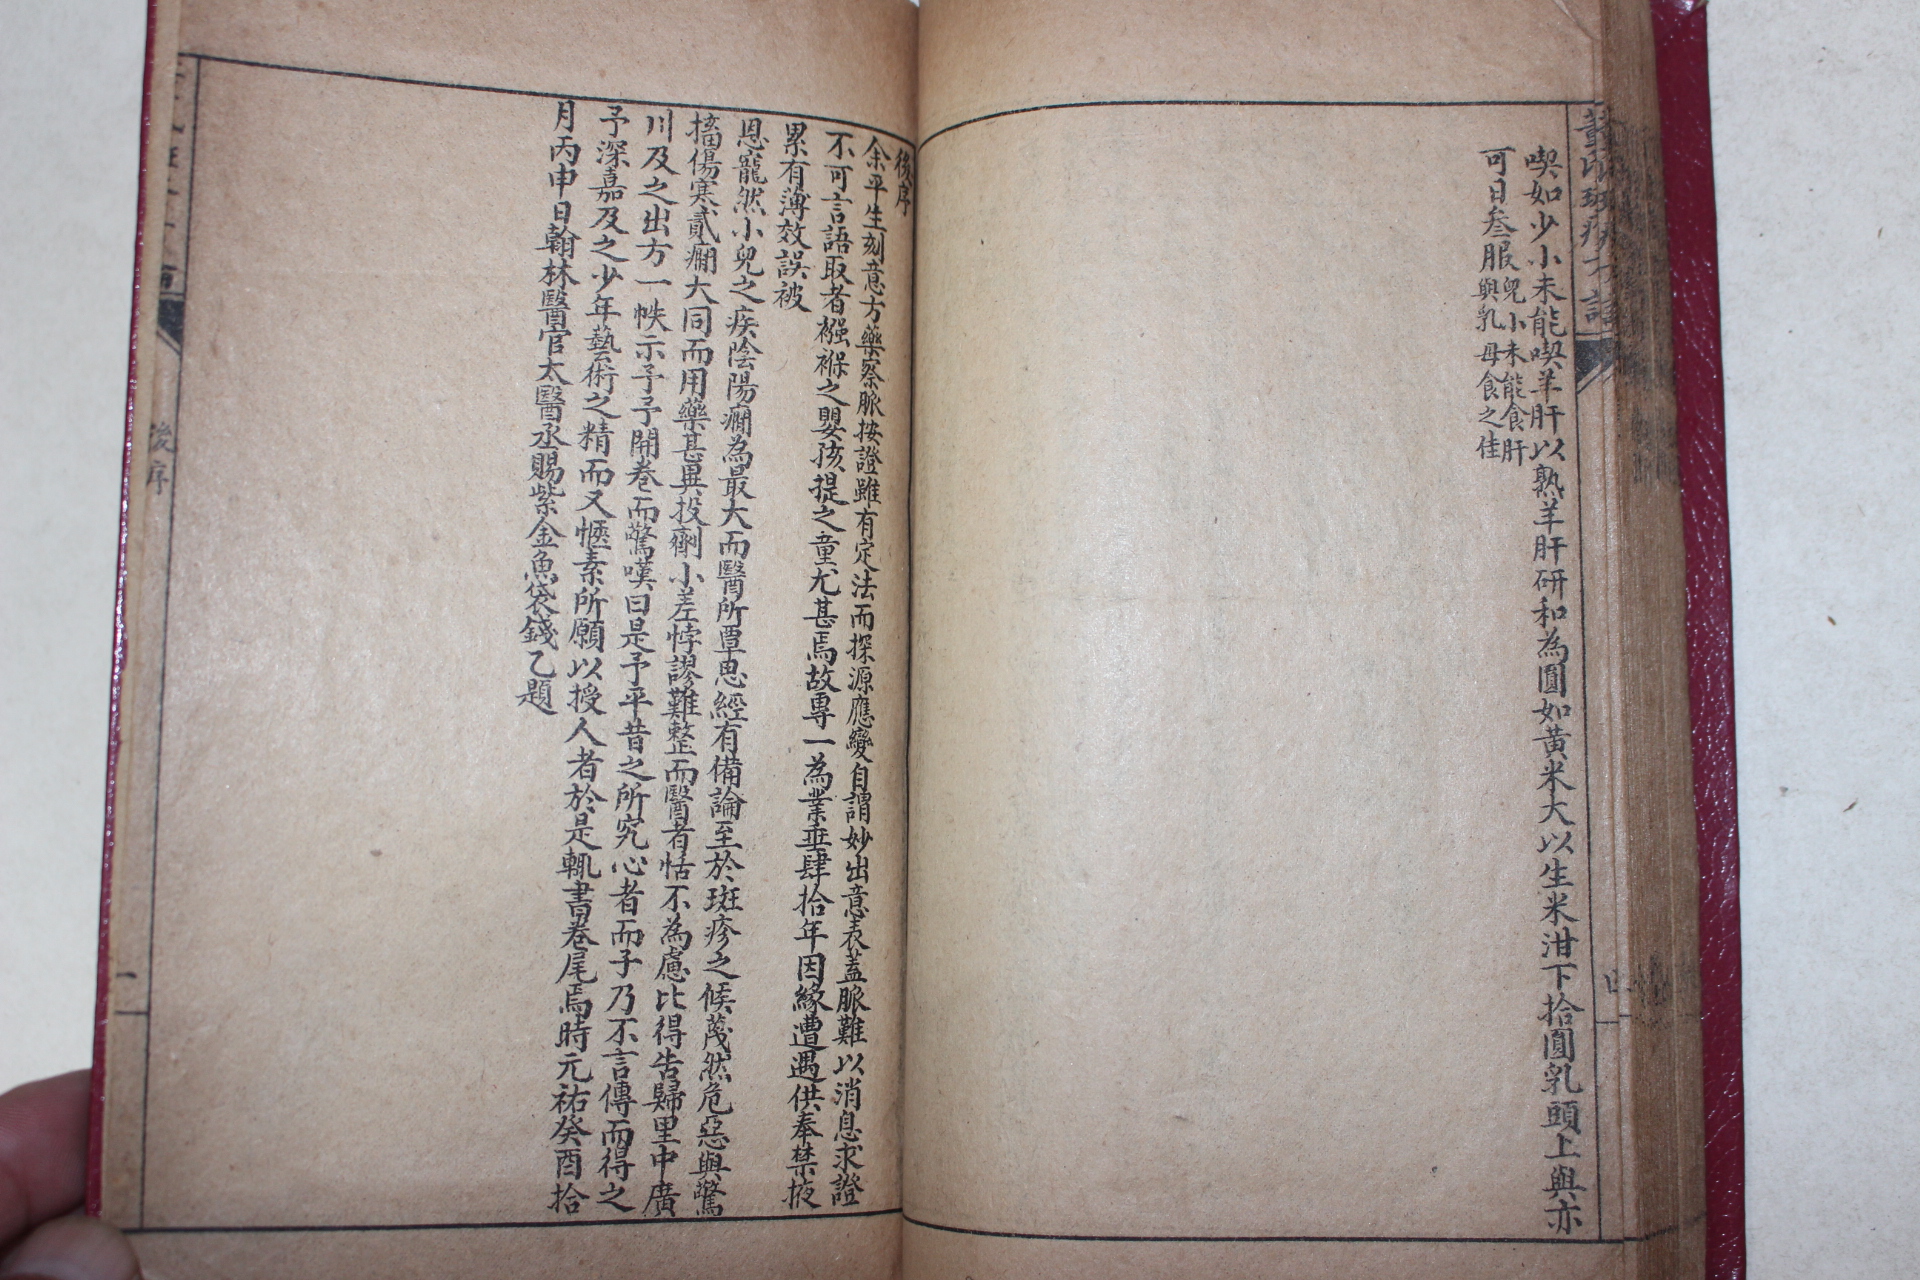 喫如少小未能喫羊肝以熟羊肝研和為圓如黃米大以生米泔下拾圓乳頭上與亦
可日叁服兒小未能食肝
與乳母食之佳
後序
余平生刻意方藥察脈按證雖有定法而探源應變自謂妙出意表蓋脈難以消息求證
不可言語取者襁褓之嬰孩提之童尤甚焉故專一為業垂肆拾年因緣遭遇供奉禁掖
累有薄效誤被
恩寵然小兒之疾陰陽癇為最大而醫所覃思經有備論至於斑疹之候蔑然危惡與驚
搐傷寒貳癇大同而用藥甚異投劑小差悖謬難整而醫者恬不為慮比得告歸里中廣
川及之出方一帙示予予開卷而驚嘆曰是予平昔之所究心者而子乃不言傳而得之
予深嘉及之少年藝術之精而又愜素所願以授人者於是輒書卷尾焉時元祐癸酉拾
月丙申日翰林醫官太醫丞賜紫金魚袋錢乙題
後序
一